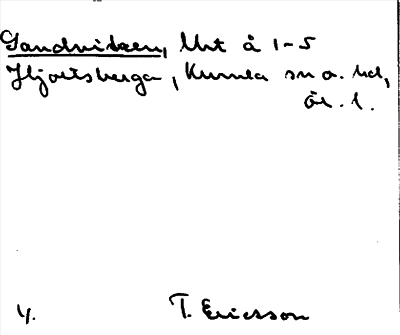 Sandviken, lht å 1-5
Hjortsberga, Kumla sn o. hd,
ör. l.
4.
T. Ericsson